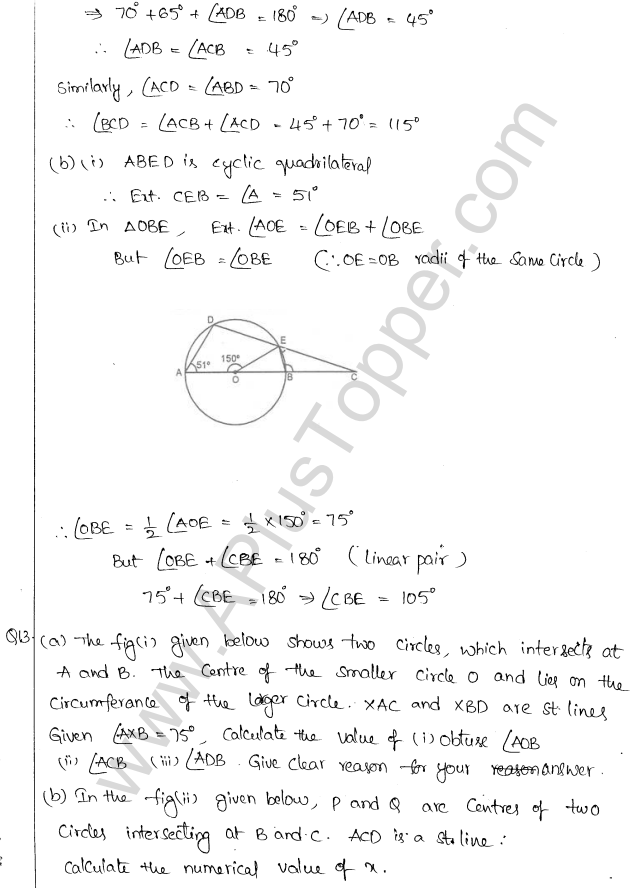 ⇒ 70° + 65° + ∠ADB = 180° ⇒ ∠ADB = 45°
∴ ∠ADB = ∠ACB = 45°
Similarly, ∠ACD = ∠ABD = 70°
∴ ∠BCD = ∠ACB + ∠ACD = 45° + 70° = 115°
(b) (i) ABED is cyclic quadrilateral
∴ Ext. CEB = ∠A = 51°
(ii) In △OBE, Ext. ∠AOE = ∠OEB + ∠OBE
But ∠OEB = ∠OBE (∵ OE = OB radii of the same circle)
D
E
A 51° 150° O B C
∴ ∠OBE = 1/2 ∠AOE = 1/2 × 150° = 75°
But ∠OBE + ∠CBE = 180° (linear pair)
75° + ∠CBE = 180° ⇒ ∠CBE = 105°
Q13. (a) The fig(i) given below shows two circles, which intersects at
A and B. The centre of the smaller circle O and lies on the
circumferance of the larger circle. XAC and XBD are st. lines
Given ∠AXB = 75°, Calculate the value of (i) obtuse ∠AOB
(ii) ∠ACB (iii) ∠ADB. Give clear reason for your reason answer.
(b) In the fig(ii) given below, P and Q are Centres of two
Circles intersecting at B and C. ACD is a st. line:
Calculate the numerical value of x.
www.APlusTopper.com